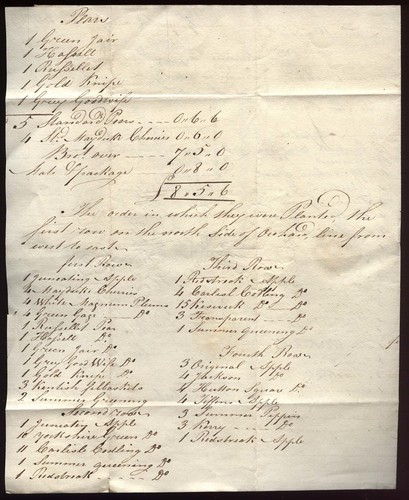 Pears
1 Green Fair
1 Hassell
1 Russellet
1 Gold Knife
1 Grey Goodwife
5 Standard Pears ---- 0 " 6 " 6
4 Std Mayduke Cherries 0 " 6 " 0
Brot over ---- 7 " 5 " 0
Mats & package 0 " 8 " 0
£ 8 " 5 " 6
The order in which they were Planted the
first row on the north Side of Orchard, line from
west to east
first Row
1 Juneating Apple
4 Mayduke Cherries
4 White Magnum Plums
4 Green Gage --- Do
1 Russellet Pear
1 Hassell Do
1 Green Fair Do
1 Grey Good Wife Do
1 Gold Knife Do
3 Kentish
2 Summer Greening
Second row
1 Juneating Apple
10 Yorkshire Green Do
11 Carlisle Codling Do
1 Summer Queening Do
1 Redstreak --- Do
Third Row
1 Redstreak Apple
4 Carlisle Codling Do
15 Keswick Do --- Do
3 Transparent --- Do
1 Summer Queening Do
Fourth Row
3 Original Apple
4 Jackson Do
4 Hutton Square Do
4 Apple
3 Summer Pippin
3 Kerry --- Do
1 Redstreak Apple